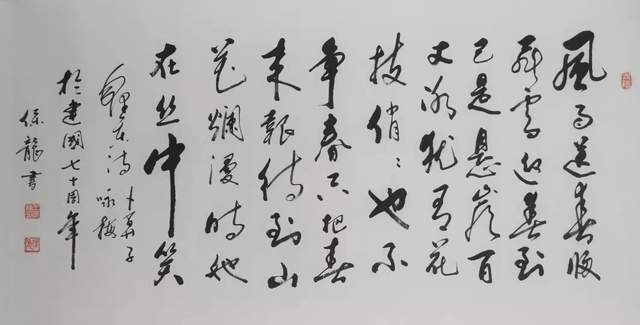 風雨送春歸
飛雪迎春到
已是懸崖百
丈冰猶有花
枝俏〻也不
争春只把春
来報待到山
花爛漫時她
在丛中笑
毛澤东詩
卜算子
咏梅
於建國七十周年
保龍書